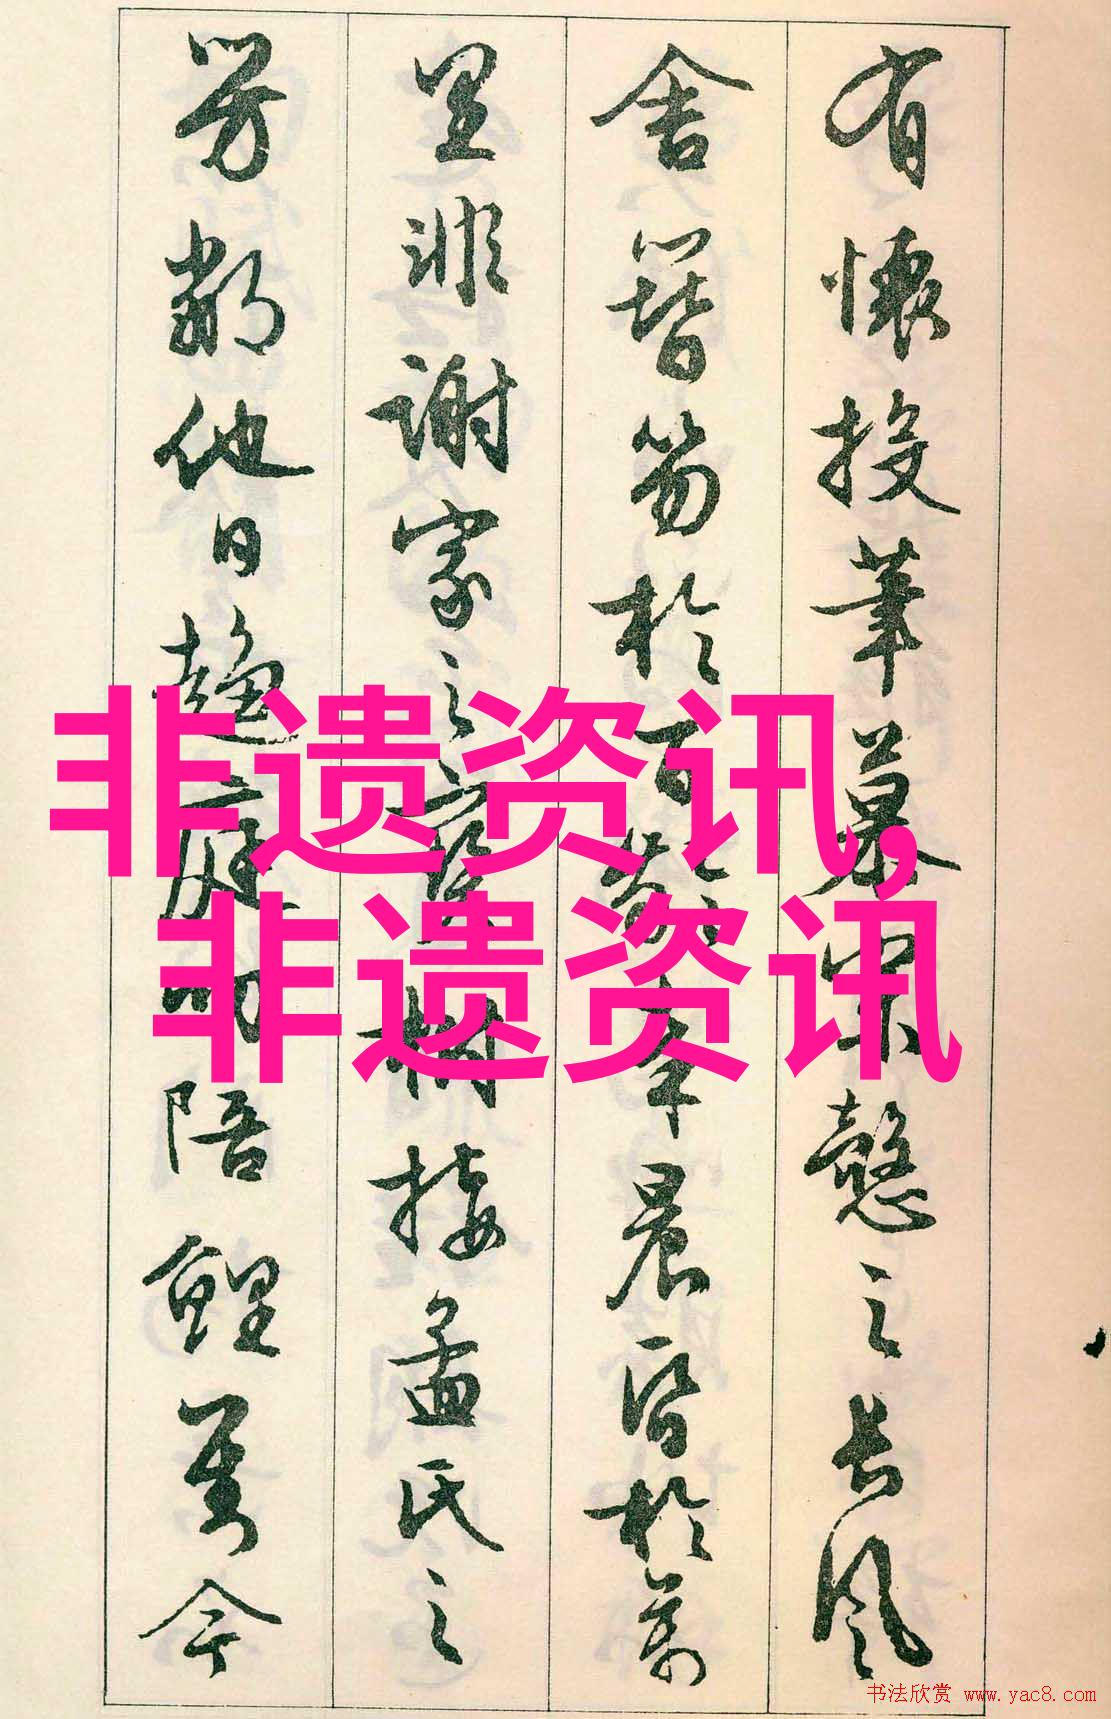 有懷投筆慕宗慤之長風
舍簪笏於百齡奉晨昏於萬
里非謝家之寶樹接孟氏之
芳鄰他日趨庭叨陪鯉對今
非遗资讯,
非遗资讯
书法欣赏 www.yac8.com